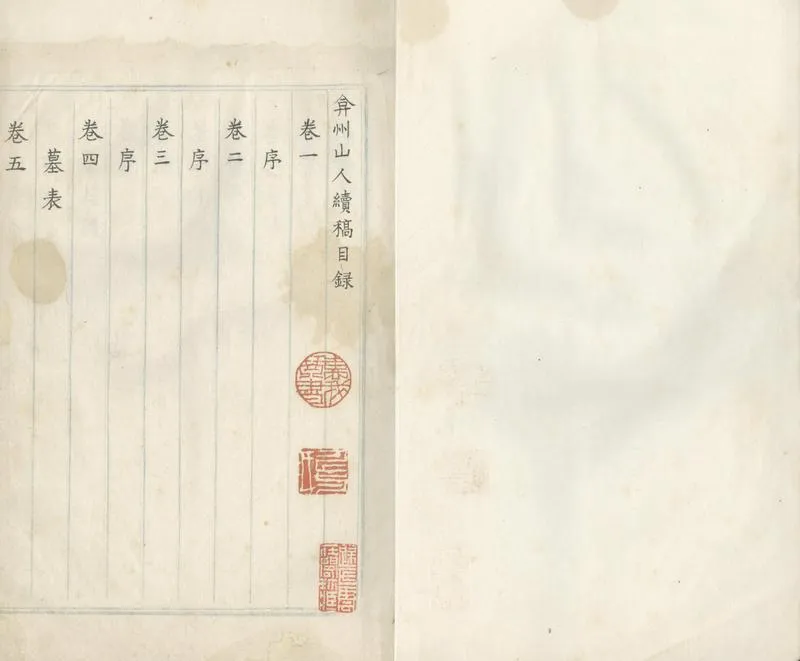 弇州山人續稿目録
卷一
序
卷二
序
卷三
序
卷四
墓表
卷五